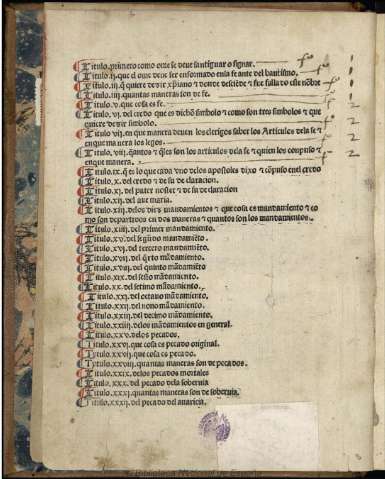 Titulo. primero como ome se deue santiguar o signar. fo 1
Titulo. ij. que el ome deue ser enformado enla fe ante del baptismo. fo 1
Titulo. iij. q̃ quiere dezir xp̃iano & donde desciẽde & fue falla do este nõbre 1
Titulo. iiij. quantas maneras son de fe. fo 1
Titulo. v. que cosa es fe. 2
Titulo. vj. del credo que es dicho simbolo & como son tres simbolos & que
quiere dezir simbolo. 2
Titulo vij. en que manera deuen los clerigos saber los Articulos dela fe &
en que manera los legos. 2
Titulo. viij. quantos & q̃les son los articulos dela fe & quien los conpuso &
en que manera. 2
Titulo. ix. q̃ es lo que cada vno delos apostoles dixo & cõpuso enel credo
Titulo. x. del credo & de su de claracion.
Titulo. xj. del pater noster & de su de claracion
Titulo. xij. del aue maria.
Titulo. xiij. delos diez mandamientos & que cosa es mandamiento & co
mo son departidos en dos maneras & quantos son los mandamientos.
Titulo. xiiij. del primer mandamiento.
Titulo. xv. del segũdo mandamiẽto.
Titulo. xvj. del tercero mandamiẽto.
Titulo. xvij. del q̃rto mãdamiento.
Titulo. xviij. del quinto mãdamiẽto
Titulo. xix. del sesto mãdamiento.
Titulo. xx. del setimo mãdamiento.
Titulo. xxj. del octauo mãdamiento.
Titulo. xxij. del nono mãdamiento.
Titulo. xxiij. del decimo mãdamiento.
Titulo. xxiiij. delos mãdamientos en general.
Titulo. xxv. delos pecados.
Titulo. xxvj. que cosa es pecado original.
Tytulo. xxvij. que cosa es pecado.
Titulo. xxviij. quantas maneras son de pecados.
Titulo. xxix. delos pecados mortales
Titulo. xxx. del pecado dela soberuia
Titulo. xxxj. quantas maneras son de soberuia.
Titulo. xxxij. del pecado del auaricia.